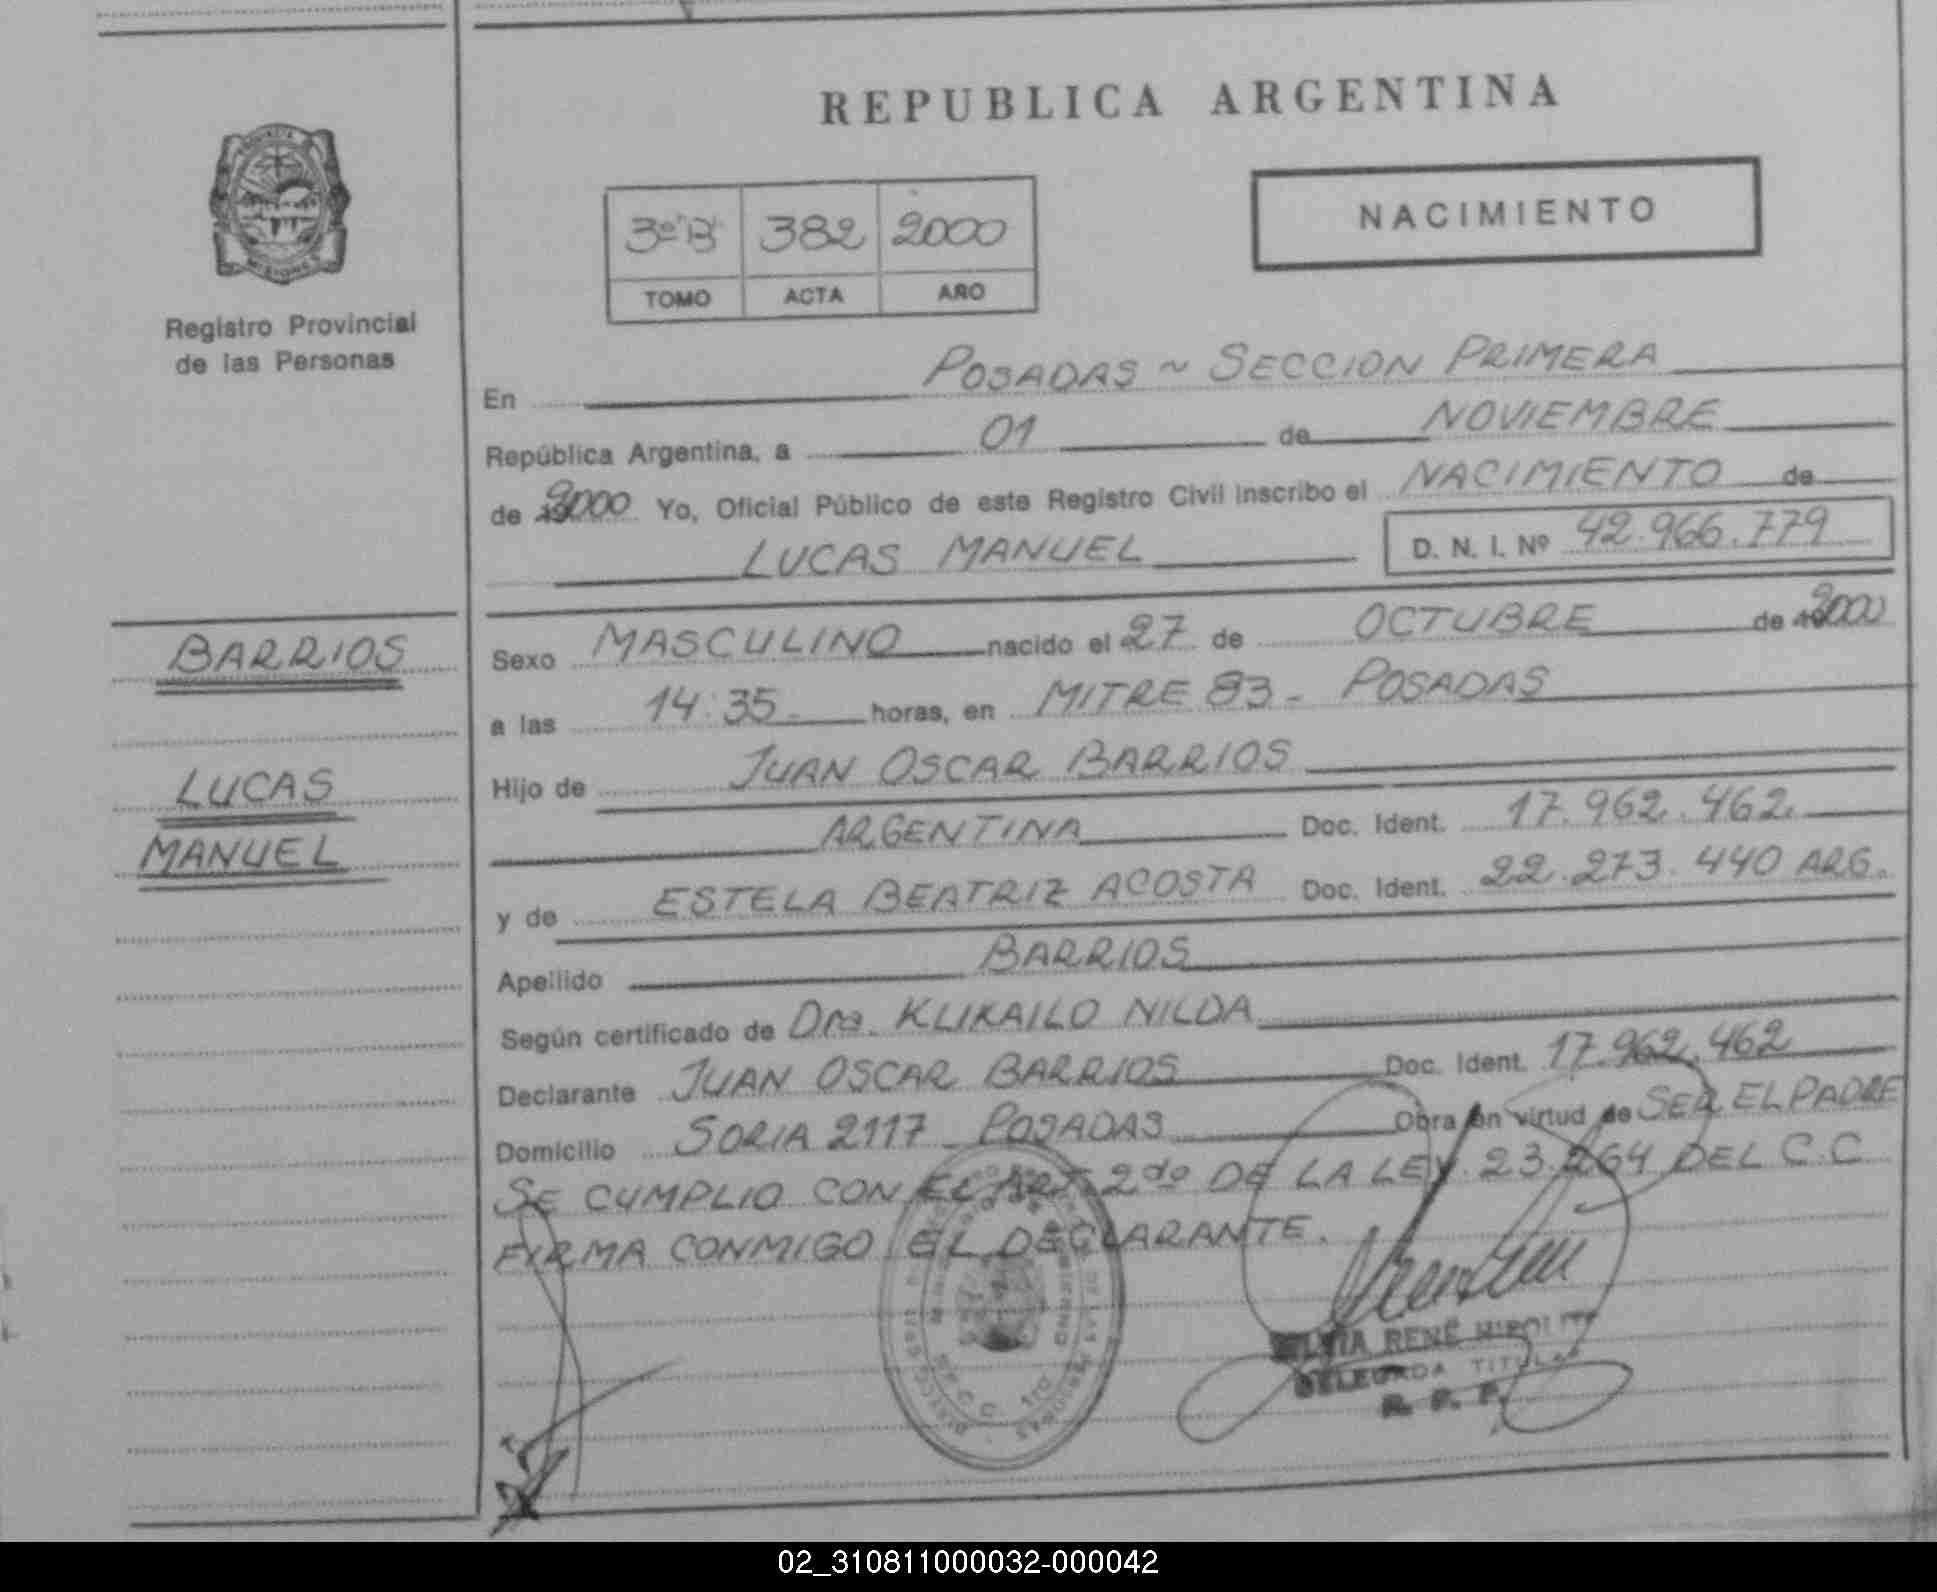 REPUBLICA ARGENTINA
PROVINCIA
MISIONES
Registro Provincial
de las Personas
3º "B" 382 2000
TOMO ACTA AÑO
NACIMIENTO
En POSADAS ~ SECCION PRIMERA
República Argentina, a 01 de NOVIEMBRE
de 2000 Yo, Oficial Público de este Registro Civil inscribo el NACIMIENTO de
LUCAS MANUEL D. N. I. Nº 42.966.779
BARRIOS
LUCAS
MANUEL
Sexo MASCULINO nacido el 27 de OCTUBRE de 2000
a las 14:35 horas, en MITRE 83 - POSADAS
Hijo de JUAN OSCAR BARRIOS
ARGENTINA Doc. Ident. 17.962.462
y de ESTELA BEATRIZ ACOSTA Doc. Ident. 22.273.440 ARG.
Apellido BARRIOS
Según certificado de Dra. KLIKAILO NILDA
Declarante JUAN OSCAR BARRIOS Doc. Ident. 17.962.462
Domicilio SORIA 2117 - POSADAS Obra en virtud de SER EL PADRE
SE CUMPLIO CON EL ART. 2do DE LA LEY. 23.264 DEL C.C
FIRMA CONMIGO EL DECLARANTE.
RENÉ
TITULAR
R. P. P.
02_310811000032-000042